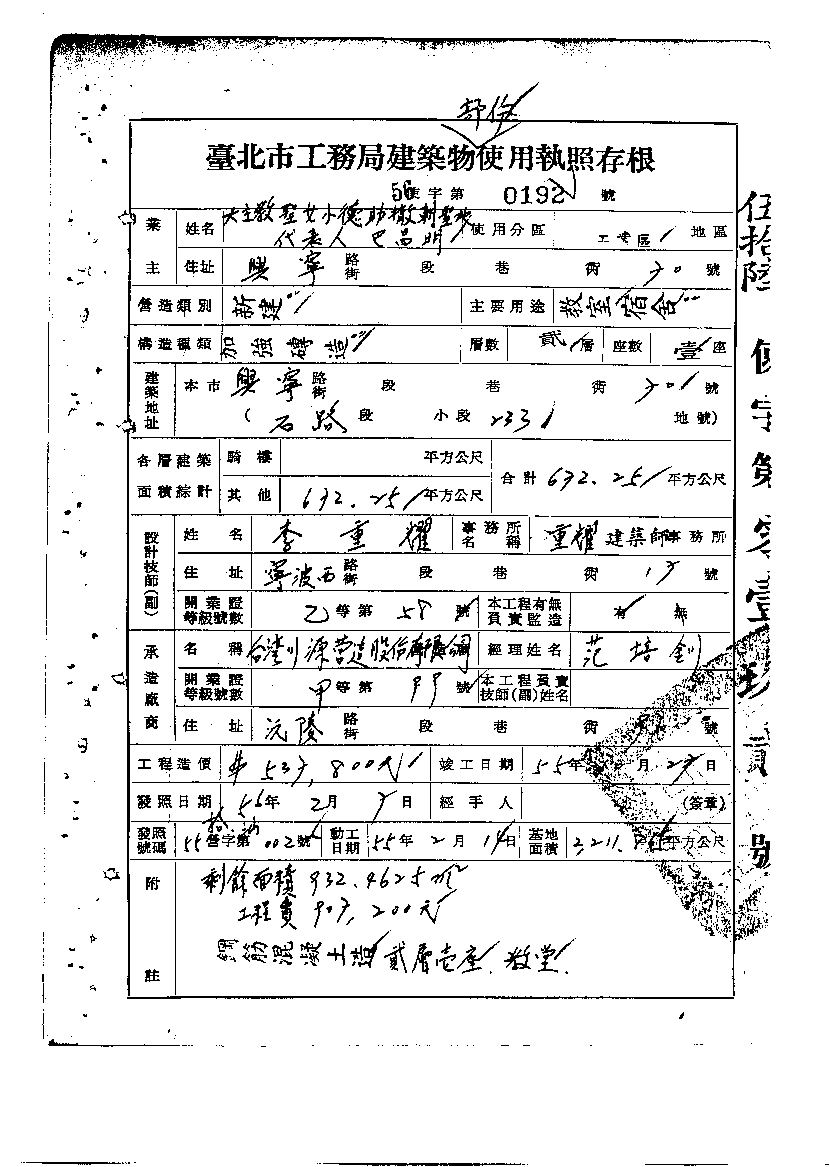 部份
臺北市工務局建築物使用執照存根
56使字第 0192 號
業主 姓名 大主教聖女小德助撒 代表人 巴昌明 使用分區 工業區 地區
住址 興寧 路街 段 巷 衖 30 號
營造類別 新建 主要用途 教室宿舍
構造種類 加強磚造 層數 貳層 座數 壹座
建築地址 本市 興寧 路街 段 巷 衖 號
( 石路 段 小段 233 地號)
各層建築面積綜計 騎樓 平方公尺 合計 632.25 平方公尺
其他 632.25 平方公尺
設計技師(副) 姓名 李重耀 事務所名稱 重耀建築師事務所
住址 寧波西 路街 段 巷 衖 號
開業證等級號數 乙等第 58 號 本工程有無負責監造 有 無
承造廠商 名稱 台灣川源營造股份有限公司 經理姓名 范培劍
開業證等級號數 甲等第 99 號 本工程負責技師(副)姓名
住址 沅陵 路街 段 巷 衖 號
工程造價 537,800元 竣工日期 55年 月 日
發照日期 56年 2月 日 經手人 (簽章)
發照號碼 55營字第 002 號 動工日期 55年 2月 14日 基地面積 平方公尺
附註 剩餘面積 932.4625 m²
工程費 907,200元
鋼筋混凝土造 貳層壱座 教堂
伍拾陸 使字第零壹玖貳號